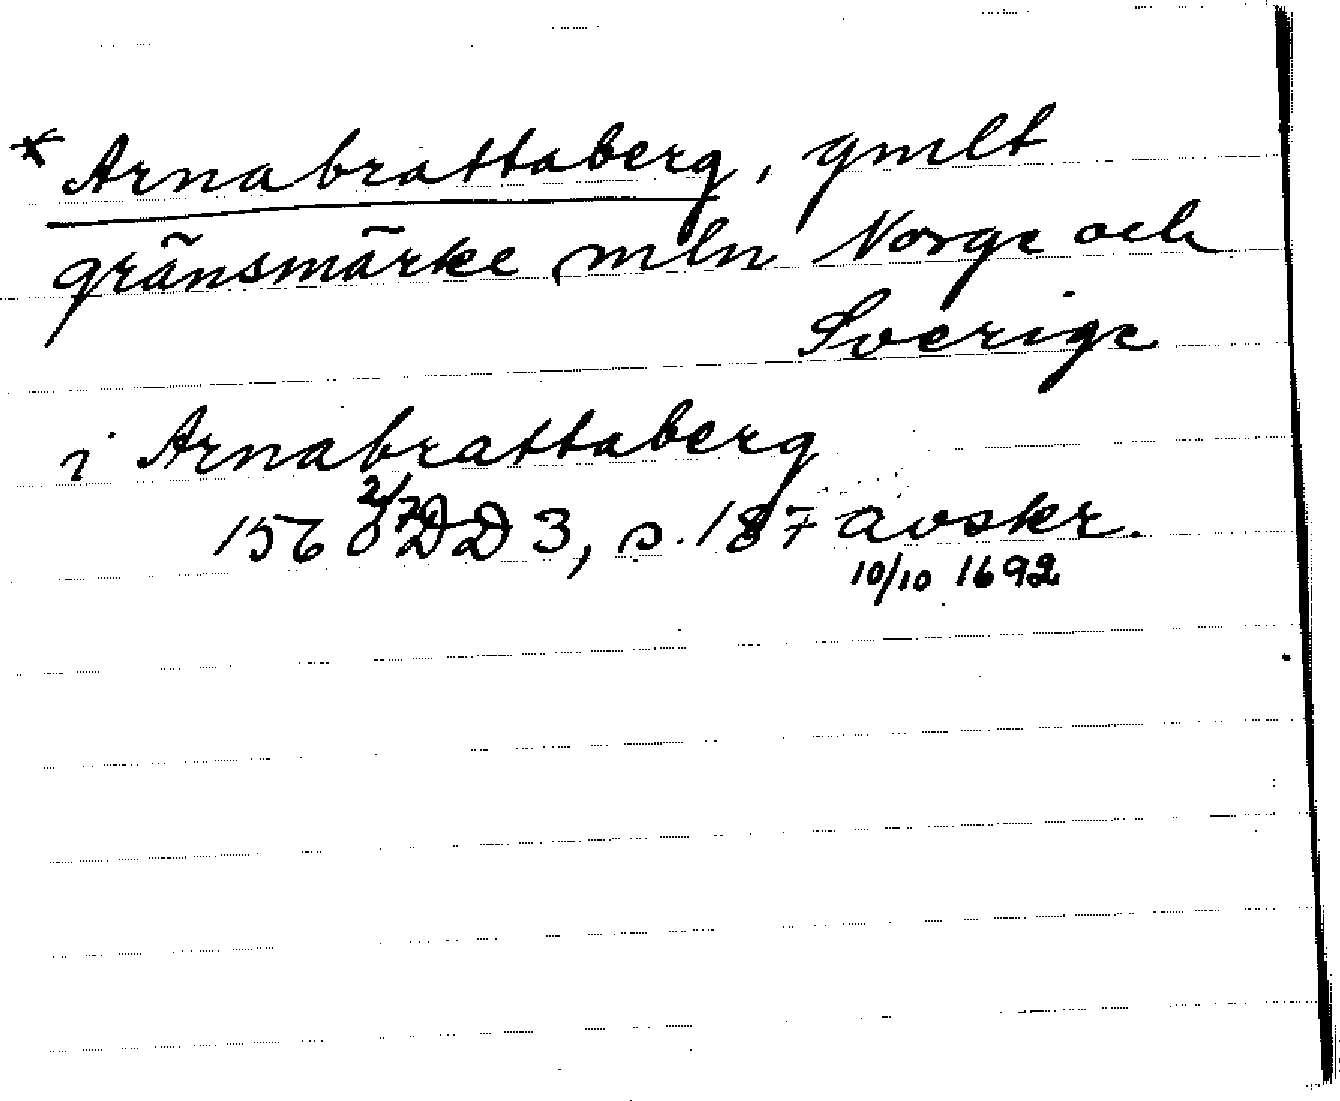 * Arnabrattaberg, gmlt
gränsmärke mln Norge och
Sverige
i Arnabrattaberg
1568 2/7 DD 3, s. 187 avskr.
10/10 1692